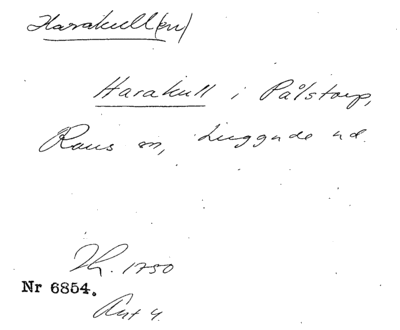 Harakull(en)
Harakull i Pålstorp,
Raus sn, Luggude hd.
Th. 1750
Nr 6854.
Ant 4